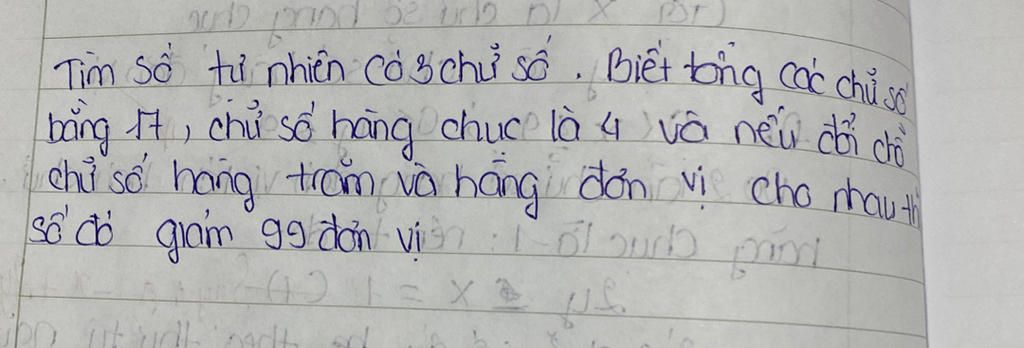 Tìm số tự nhiên có 3 chữ số. Biết tổng các chữ số
bằng 17, chữ số hàng chục là 4 và nếu đổi chỗ
chữ số hàng trăm và hàng đơn vị cho nhau thì
số đó giảm 99 đơn vị